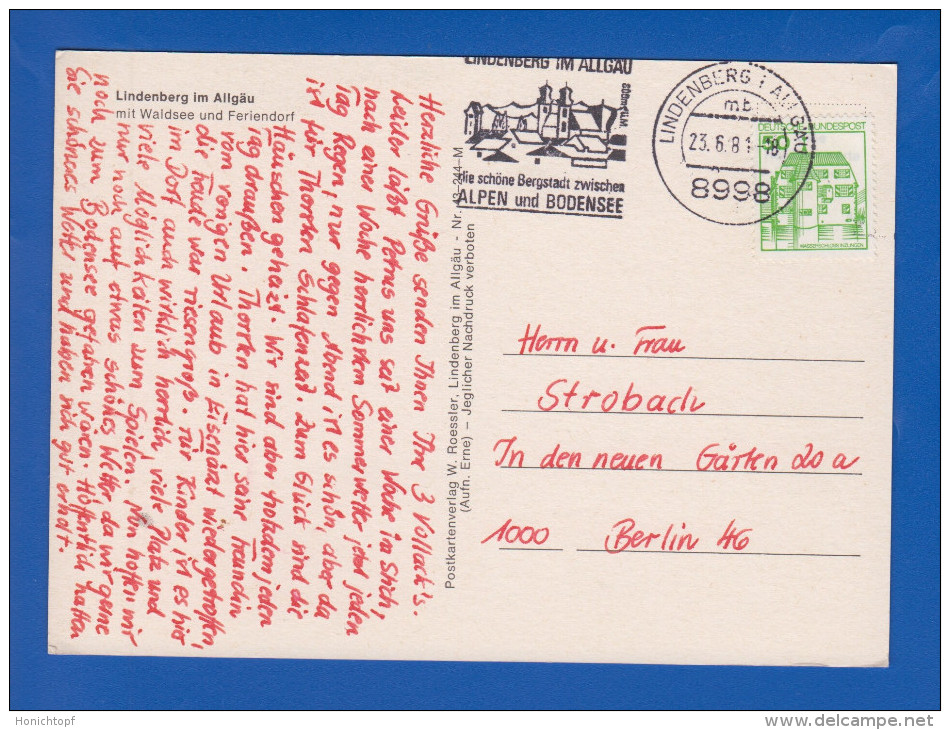 Lindenberg im Allgäu
mit Waldsee und Feriendorf
Herzliche Grüße senden Ihnen Ihre 3 Vollack's.
Leider läßt Petrus uns seit einer Woche im Stich,
nach einer Woche herrlichstem Sommerwetter jetzt jeden
Tag Regen, nur gegen Abend ist es schön, aber da
ist für Thorsten Schlafenszeit. Zum Glück sind die
Häuschen geheizt. Wir sind aber trotzdem jeden
Tag draußen. Thorsten hat hier seine Freundin
vom vorigen Urlaub in wiedergetroffen,
die Freude war riesengroß. Für Kinder ist es hier
im Dorf auch wirklich herrlich, viele Platz und
viele Möglichkeiten zum Spielen. Nun hoffen wir
nur noch auf etwas schönes Wetter, da wir gerne
noch zum Bodensee gefahren wären. Hoffentlich hatten
Sie schönes Wetter und haben sich gut erholt.
Postkartenverlag W. Roessler, Lindenberg im Allgäu - Nr. 43-244-M
(Aufn. Erne) – Jeglicher Nachdruck verboten
LINDENBERG IM ALLGÄU
800m
die schöne Bergstadt zwischen
ALPEN und BODENSEE
LINDENBERG I ALLGÄU
mb
23.6.81-18
8998
DEUTSCHE BUNDESPOST
50
WASSERSCHLOSS INZLINGEN
Herrn u. Frau
Strobach
In den neuen Gärten 20 a
1000 Berlin 46
Honichtopf
www.delcampe.net